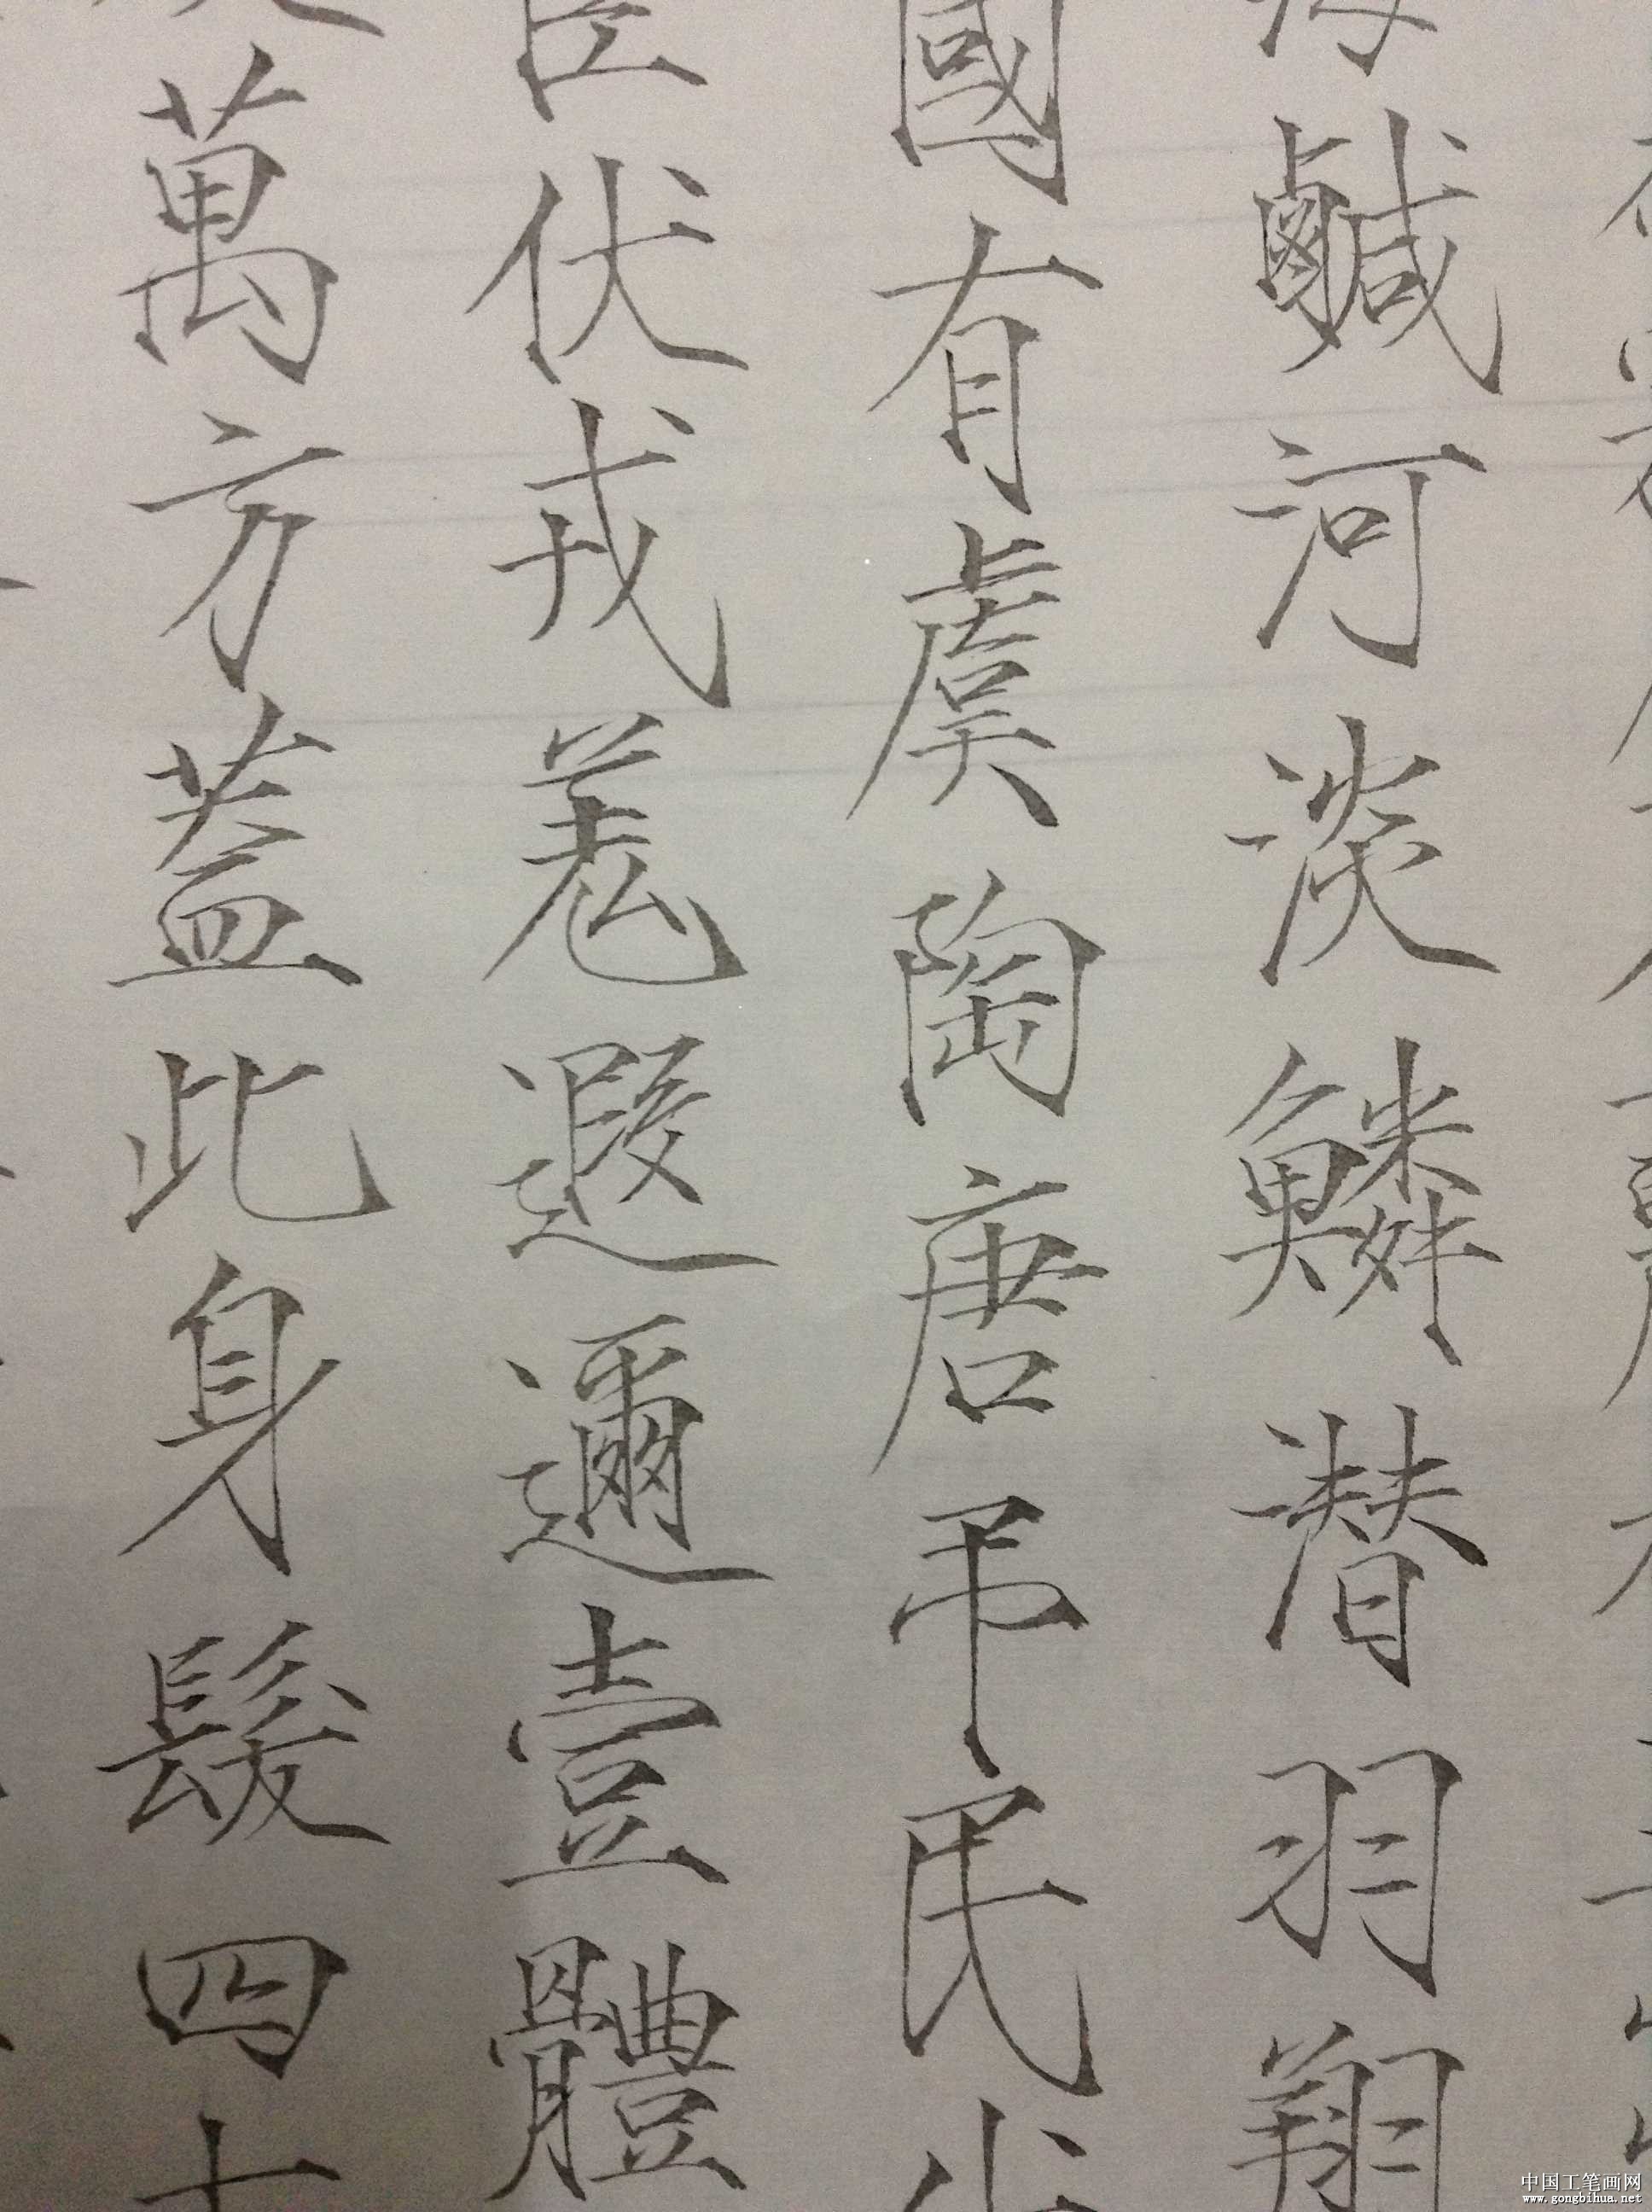 海鹹河淡鱗潜羽翔
國有虞陶唐弔民
臣伏戎羌遐邇壹體
萬方蓋此身髮四大
中国工笔画网
www.gongbihua.net